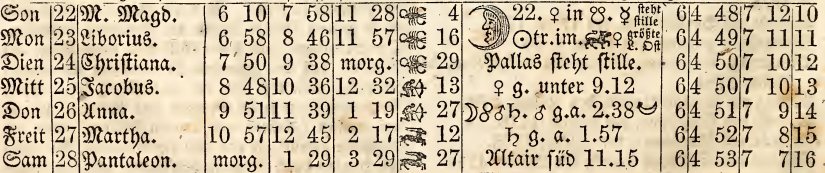 Son 22 M. Magd. 6 10 7 58 11 28 4 22. ♀ in ☋. ☿ steht stille 6 4 48 7 12 10
Mon 23 Liborius. 6 58 8 46 11 57 16 ☉tr.im. ♀ größte L. Ost 6 4 49 7 11 11
Dien 24 Christiana. 7 50 9 38 morg. 29 Pallas steht stille. 6 4 50 7 10 12
Mitt 25 Jacobus. 8 48 10 36 12 32 13 ♀ g. unter 9.12 6 4 50 7 10 13
Don 26 Anna. 9 51 11 39 1 19 27 ☽☍♂♄. ♂ g.a. 2.38 6 4 51 7 9 14
Freit 27 Martha. 10 57 12 45 2 17 12 ♄ g. a. 1.57 6 4 52 7 8 15
Sam 28 Pantaleon. morg. 1 29 3 29 27 Altair süd 11.15 6 4 53 7 7 16